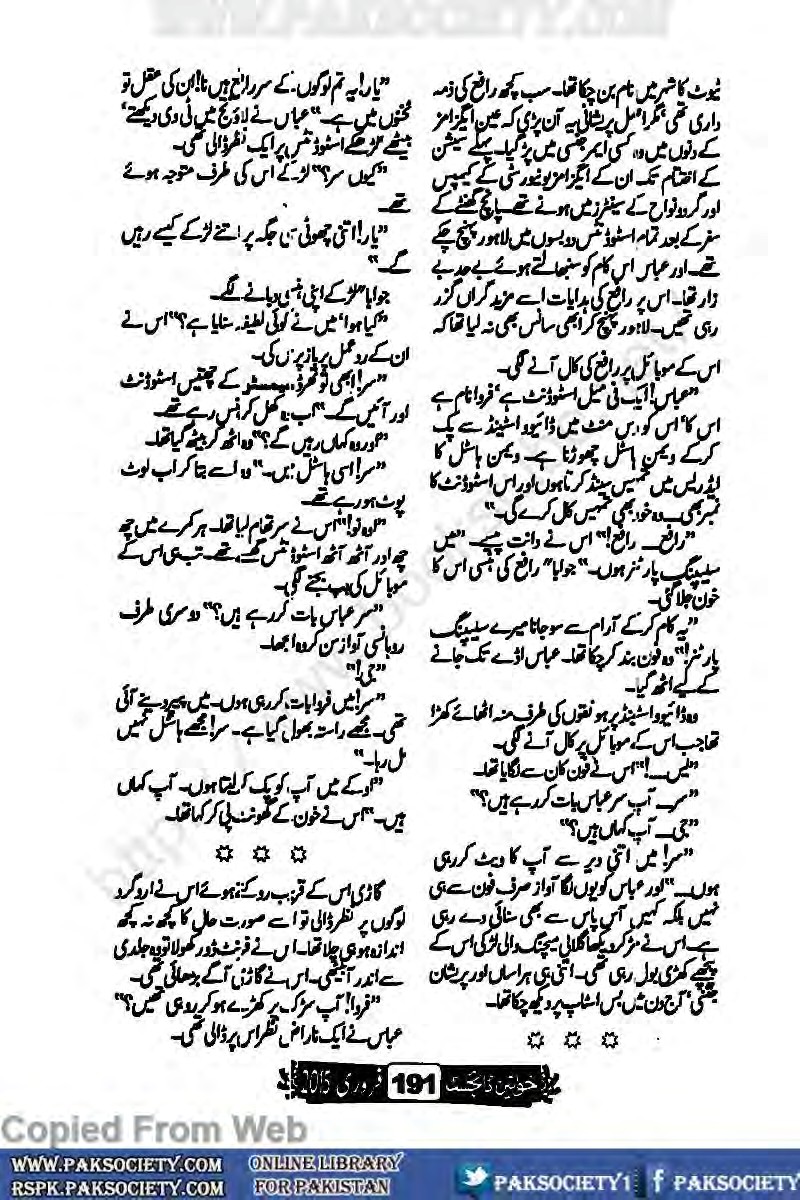 ٹیوٹ کا شہر میں نام بن چکا تھا۔ سب کچھ رافع کی ذمہ
داری تھی، مگر اصل پریشانی یہ آن پڑی کہ عین ایگزامز
کے دنوں میں وہ کسی ایمرجنسی میں پڑ گیا۔ پہلے سیشن
کے اختتام تک ان کے ایگزامز یونیورسٹی کے کیمپس
اور گردو نواح کے سینٹرز میں ہونے تھے۔ پانچ گھنٹے کے
سفر کے بعد تمام اسٹوڈنٹس دو بسوں میں لاہور پہنچ چکے
تھے۔ اور عباس اس کام کو سنبھالتے ہوئے بے حد بے
زار تھا۔ اس پر رافع کی ہدایات اسے مزید گراں گزر
رہی تھیں۔ لاہور پہنچ کر ابھی سانس بھی نہ لیا تھا کہ
اس کے موبائل پر رافع کی کال آنے لگی۔
”عباس! ایک فی میل اسٹوڈنٹ ہے، فروا نام ہے
اس کا، اس کو دس منٹ میں ڈائیوو اسٹینڈ سے پک
کرکے ویمن ہاسٹل چھوڑنا ہے۔ ویمن ہاسٹل کا
ایڈریس میں تمہیں سینڈ کرتا ہوں اور اس اسٹوڈنٹ کا
نمبر بھی۔ وہ خود بھی تمہیں کال کرے گی۔“
”رافع۔ رافع!“ اس نے دانت پیسے۔ ”میں
سلیپنگ پارٹنر ہوں۔“ جواباً رافع کی ہنسی اس کا
خون جلا گئی۔
”یہ کام کرکے آرام سے سو جانا میرے سلیپنگ
پارٹنر!“ وہ فون بند کر چکا تھا۔ عباس اڈے تک جانے
کے لیے اٹھ گیا۔
وہ ڈائیوو اسٹینڈ پر ہونقوں کی طرف منہ اٹھائے کھڑا
تھا جب اس کے موبائل پر کال آنے لگی۔
”یس۔!“ اس نے فون کان سے لگایا تھا۔
”سر۔ آپ سر عباس بات کر رہے ہیں؟“
”جی۔ آپ کہاں ہیں؟“
”سر! میں اتنی دیر سے آپ کا ویٹ کر رہی
ہوں۔“ اور عباس کو یوں لگا آواز صرف فون سے ہی
نہیں بلکہ کہیں آس پاس سے بھی سنائی دے رہی
ہے۔ اس نے مڑ کر دیکھا گلابی میچنگ والی لڑکی اس کے
پیچھے کھڑی بول رہی تھی۔ اتنی ہی ہراساں اور پریشان
جتنی، آج دن میں بس اسٹاپ پر دیکھ چکا تھا۔
✡ ✡ ✡
”یار! یہ تم لوگوں کے سر رافع ہیں نا! ان کی عقل تو
ٹخنوں میں ہے۔“ عباس نے لاؤنج میں ٹی وی دیکھتے،
بیٹھے لڑکے اسٹوڈنٹس پر ایک نظر ڈالی تھی۔
”کیوں سر؟“ لڑکے اس کی طرف متوجہ ہوئے
تھے۔
”یار! اتنی چھوٹی سی جگہ پر اتنے لڑکے کیسے رہیں
گے۔“
جواباً لڑکے اپنی ہنسی دبانے لگے۔
”کیا ہوا، میں نے کوئی لطیفہ سنایا ہے؟“ اس نے
ان کے ردعمل پر باز پرس کی۔
”سر! ابھی تو تھرڈ سمسٹر کے چھتیس اسٹوڈنٹ
اور آئیں گے۔“ اب وہ کھل کر ہنس رہے تھے۔
”اور وہ کہاں رہیں گے؟“ وہ اٹھ کر بیٹھ گیا تھا۔
”سر! اسی ہاسٹل میں۔“ وہ اسے بتا کر اب لوٹ
پوٹ ہو رہے تھے۔
”اوہ نو!“ اس نے سر تھام لیا تھا۔ ہر کمرے میں چھ
چھ اور آٹھ آٹھ اسٹوڈنٹس گھسے تھے۔ تب ہی اس کے
موبائل کی بپ بجنے لگی۔
”سر عباس بات کر رہے ہیں؟“ دوسری طرف
روہانسی آواز سن کر وہ الجھا۔
”جی!“
”سر! میں فروا بات کر رہی ہوں۔ میں پیپر دینے آئی
تھی۔ مجھے راستہ بھول گیا ہے۔ سر! مجھے ہاسٹل نہیں
مل رہا۔“
”اوکے میں آپ کو پک کر لیتا ہوں۔ آپ کہاں
ہیں۔“ اس نے خون کے گھونٹ پی کر کہا تھا۔
✡ ✡ ✡
گاڑی اس کے قریب روکتے ہوئے اس نے اردگرد
لوگوں پر نظر ڈالی تو اسے صورت حال کا کچھ نہ کچھ
اندازہ ہو ہی چلا تھا۔ اس نے فرنٹ ڈور کھولا تو وہ جلدی
سے اندر آ بیٹھی۔ اس نے گاڑی آگے بڑھائی تھی۔
”فروا! آپ سڑک پر کھڑے ہو کر رو رہی تھیں؟“
عباس نے ایک ناراض نظر اس پر ڈالی تھی۔
خواتین ڈائجسٹ 191 فروری 2015
Copied From Web
WWW.PAKSOCIETY.COM
RSPK.PAKSOCIETY.COM
ONLINE LIBRARY
FOR PAKISTAN
PAKSOCIETY1
PAKSOCIETY